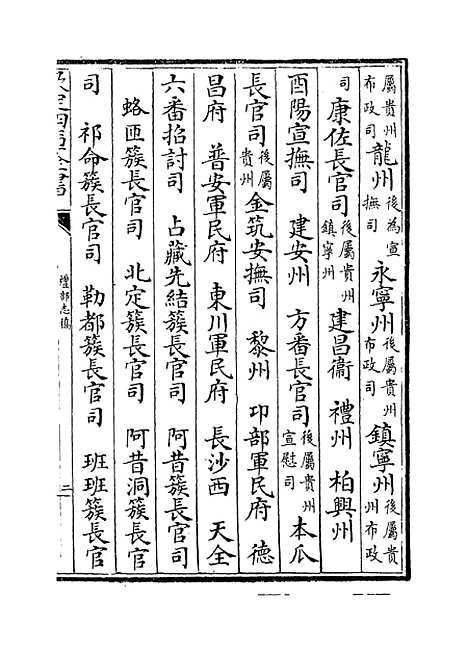 屬貴州布政司 龍州後為宣撫司 永寧州後屬貴州布政司 鎮寧州後屬貴州布政
司 康佐長官司後屬貴州鎮寧州 建昌衞 禮州 柏興州
酉陽宣撫司 建安州 方番長官司後屬貴州宣慰司 本瓜
長官司後屬貴州 金筑安撫司 黎州 卭部軍民府 德
昌府 普安軍民府 東川軍民府 長沙西 天全
六番招討司 占藏先結簇長官司 阿昔簇長官司
蛒匝簇長官司 北定簇長官司 阿昔洞簇長官
司 祁命簇長官司 勒都簇長官司 班班簇長官
欽定四庫全書
禮部志稿
二